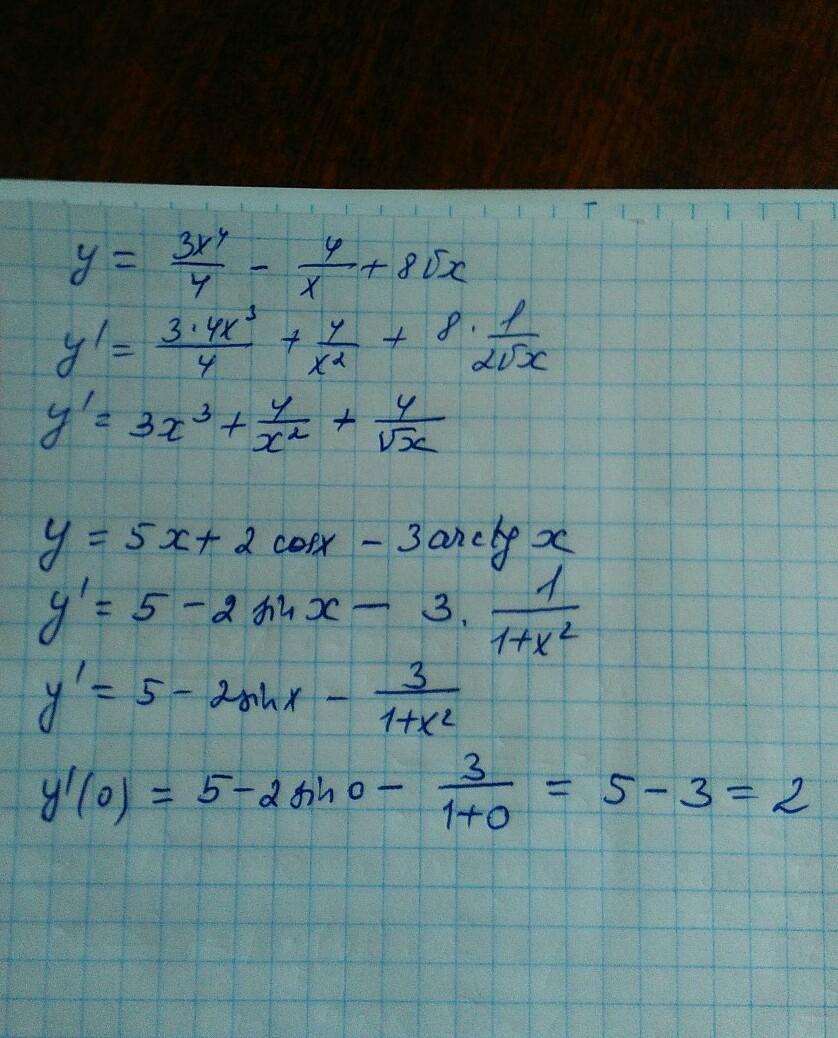 y = 3x⁴/4 - 4/x + 8√x
y' = 3·4x³/4 + 4/x² + 8·1/2√x
y' = 3x³ + 4/x² + 4/√x
y = 5x + 2 cosx - 3 arctg x
y' = 5 - 2 sin x - 3. 1/1+x²
y' = 5 - 2sinx - 3/1+x²
y'(0) = 5 - 2 sin 0 - 3/1+0 = 5 - 3 = 2